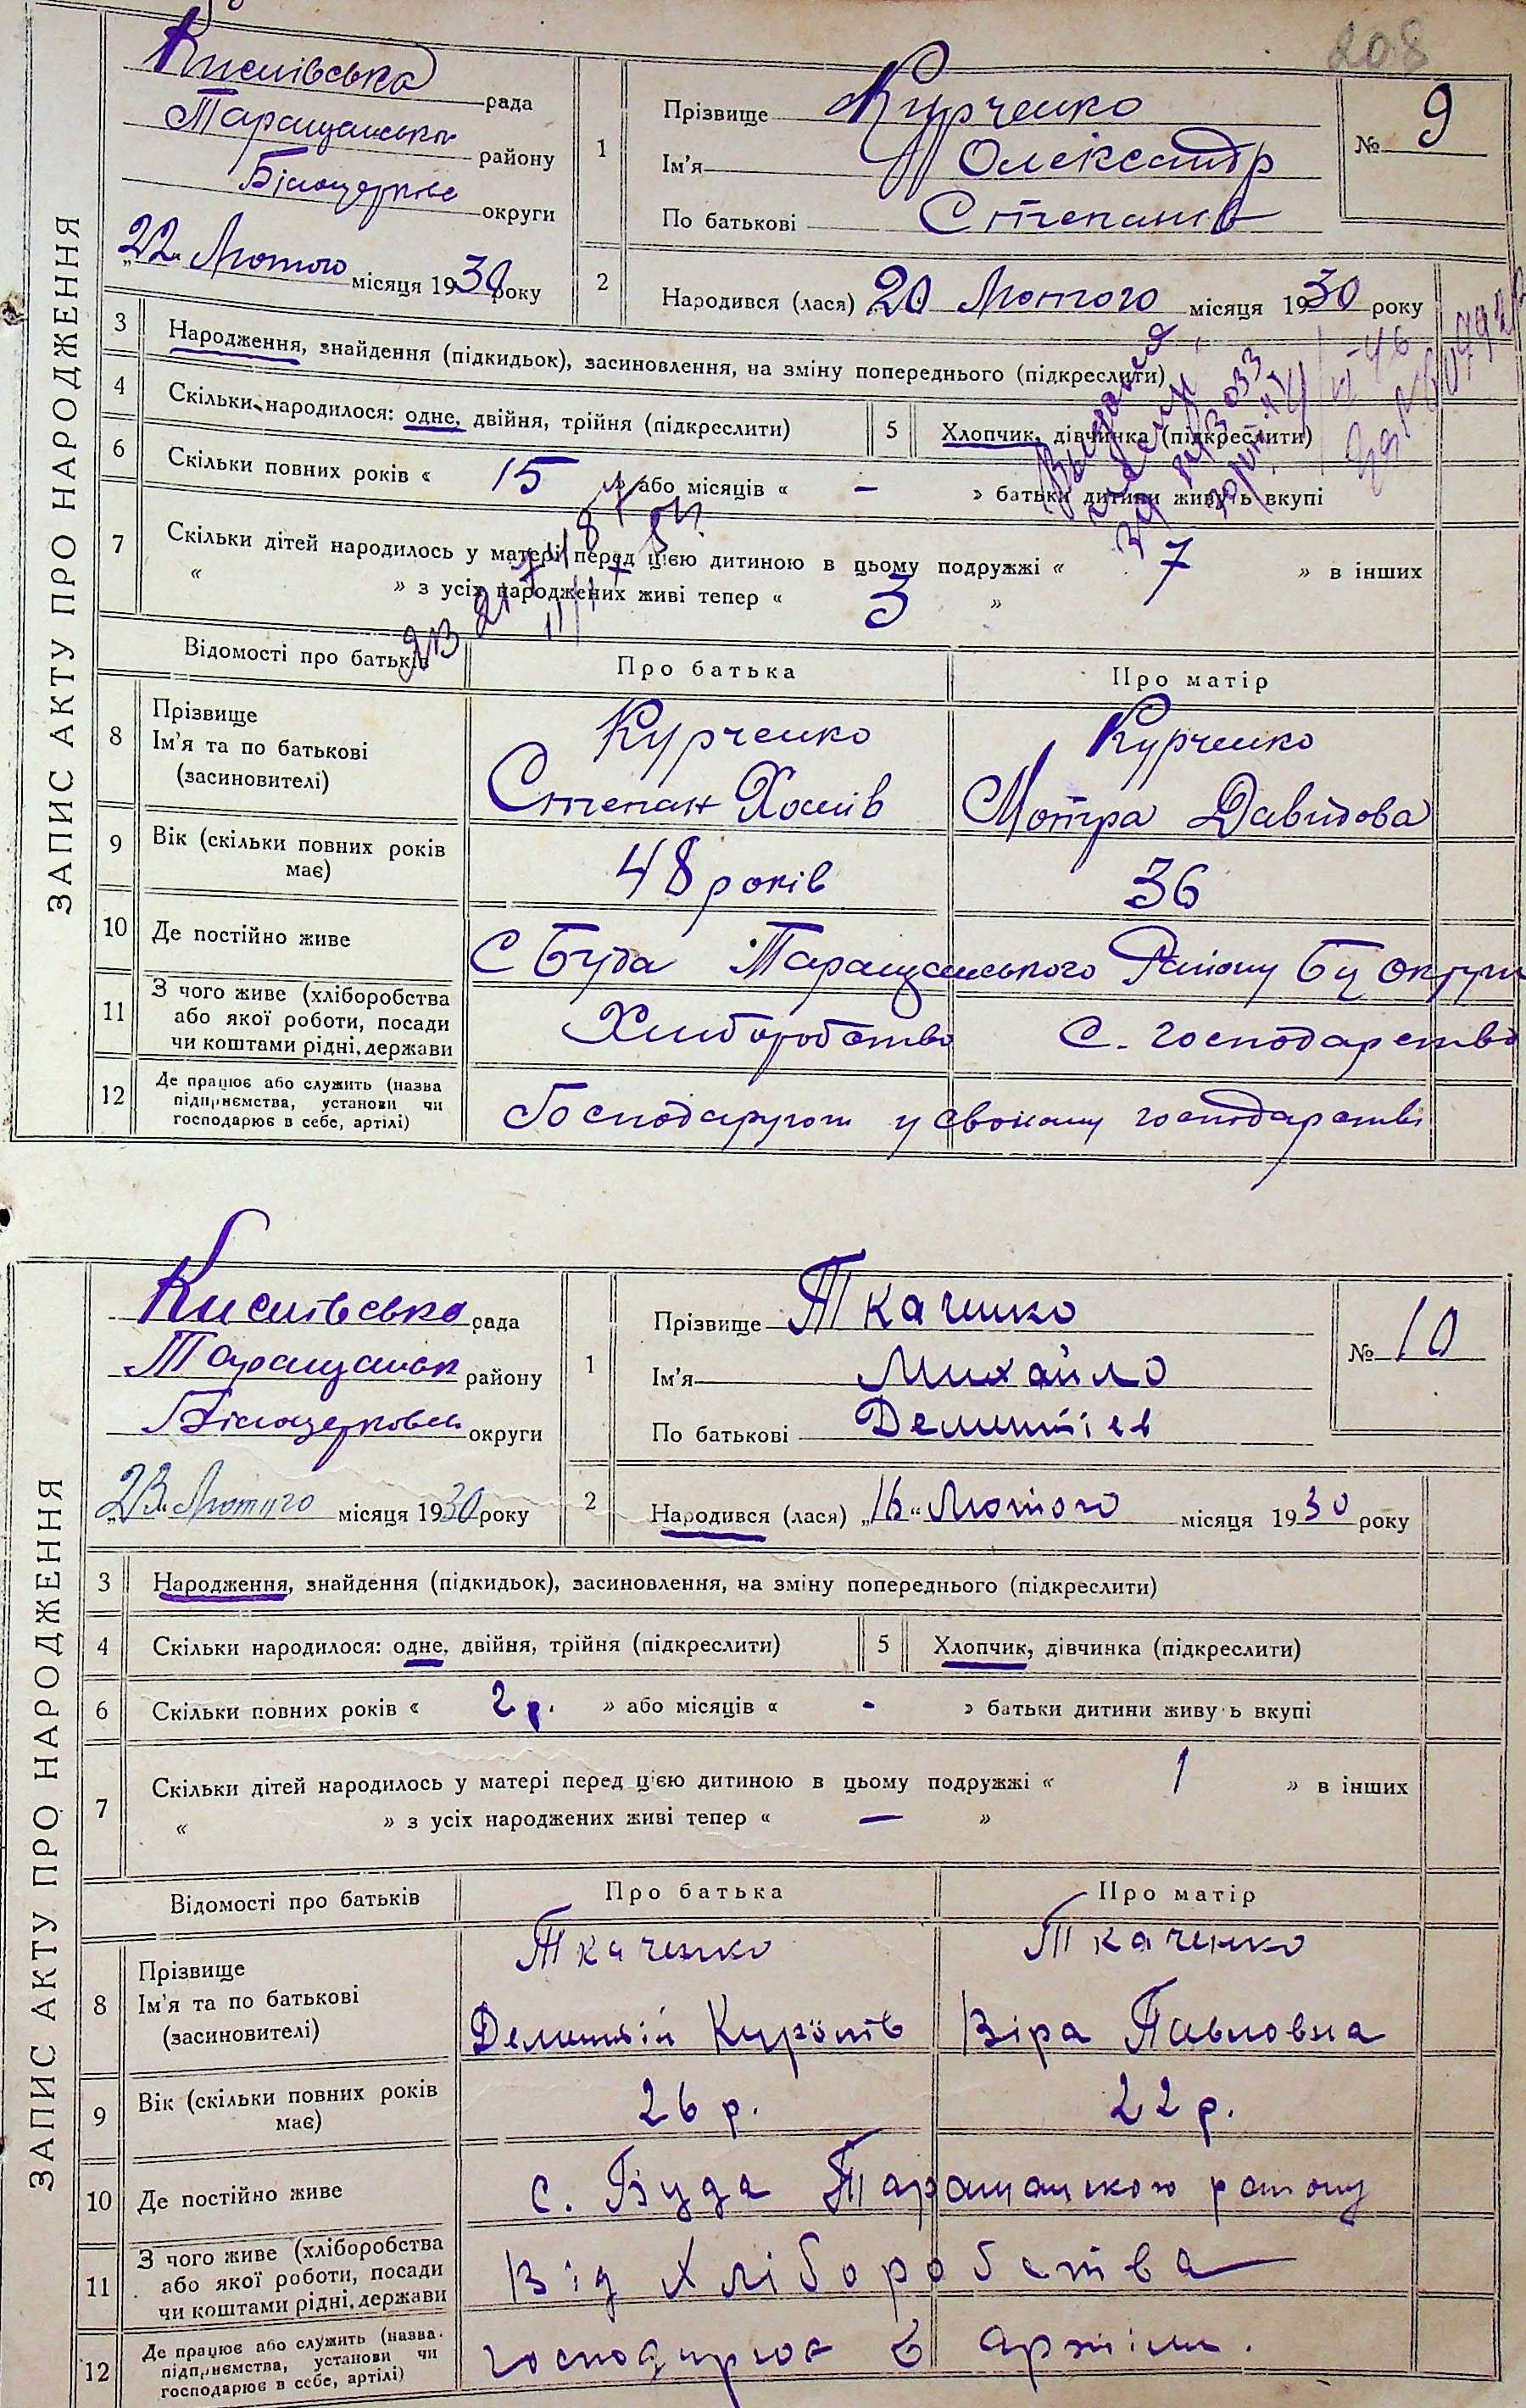 208
рада
Таращанськ району
Білоцерківс округи
„22“ Лютого місяця 1930 року
1
Прізвище Курченко
Ім'я Олександр
По батькові Степанів
№ 9
2
Народився (лася) 20 Лютого місяця 1930 року
3 Народження, знайдення (підкидьок), засиновлення, на зміну попереднього (підкреслити)
4 Скільки народилося: одне, двійня, трійня (підкреслити) 5 Хлопчик, дівчинка (підкреслити)
6 Скільки повних років « 15 » або місяців « - » батьки дитини живуть вкупі
7 Скільки дітей народилось у матері перед цією дитиною в цьому подружжі « 7 » в інших
« » з усіх народжених живі тепер « 3 »
Відомості про батьків Про батька Про матір
8 Прізвище
Ім'я та по батькові
(засиновителі)
Курченко Курченко
Степан Мотра Давидова
9 Вік (скільки повних років має) 48 років 36
10 Де постійно живе С Буда Таращанського Району Бц округи
11 З чого живе (хліборобства
або якої роботи, посади
чи коштами рідні, держави
Хліборобство С. господарство
12 Де працює або служить (назва
підприємства, установи чи
господарює в себе, артілі)
Господарують у свойому господарстві
ЗАПИС АКТУ ПРО НАРОДЖЕННЯ
рада
Таращанськ району
Білоцерковськ округи
„23“ Лютого місяця 1930 року
1
Прізвище Ткаченко
Ім'я Михайло
По батькові Дементіев
№ 10
2
Народився (лася) „16“ Лютого місяця 1930 року
3 Народження, знайдення (підкидьок), засиновлення, на зміну попереднього (підкреслити)
4 Скільки народилося: одне, двійня, трійня (підкреслити) 5 Хлопчик, дівчинка (підкреслити)
6 Скільки повних років « 2 р. » або місяців « - » батьки дитини живу ь вкупі
7 Скільки дітей народилось у матері перед цією дитиною в цьому подружжі « 1 » в інших
« » з усіх народжених живі тепер « — »
Відомості про батьків Про батька Про матір
8 Прізвище
Ім'я та по батькові
(засиновителі)
Ткаченко Ткаченко
Дементій Віра Павловна
9 Вік (скільки повних років має) 26 р. 22 р.
10 Де постійно живе с. Буда Таращанського району
11 З чого живе (хліборобства
або якої роботи, посади
чи коштами рідні, держави
Від хліборобства
12 Де працює або служить (назва
підприємства, установи чи
господарює в себе, артілі)
господарює в артілі.
ЗАПИС АКТУ ПРО НАРОДЖЕННЯ